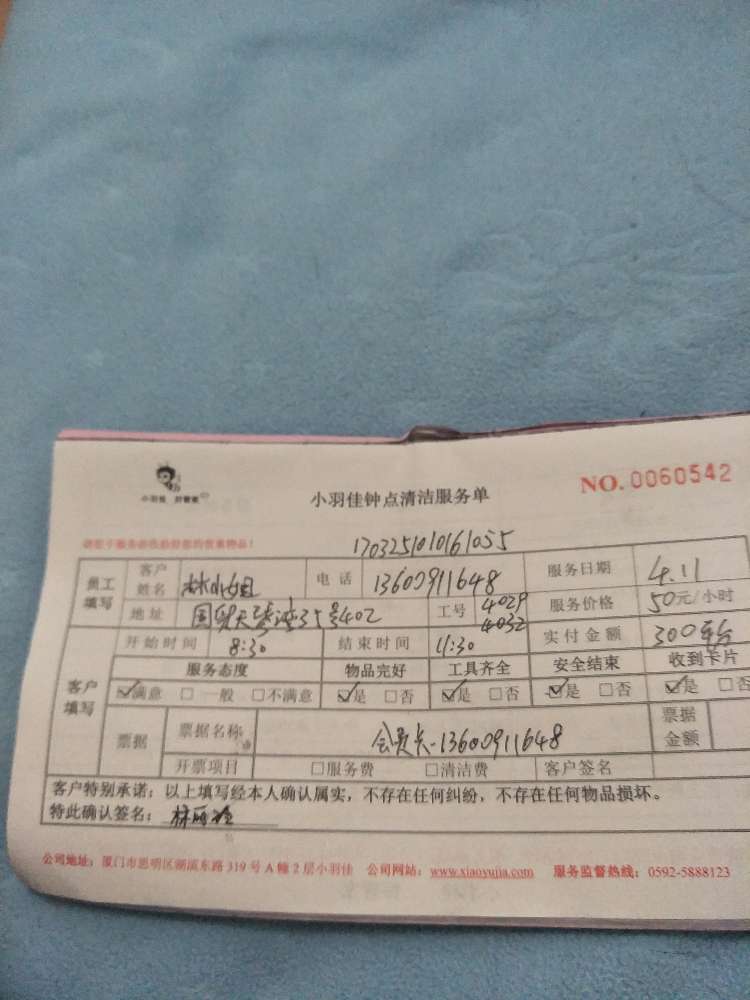 小羽佳 好管家
小羽佳钟点清洁服务单
NO. 0060542
请您于服务前收拾好您的贵重物品！
1703251010161055
员工填写 客户姓名 林小姐 电话 13600911648 服务日期 4.11
地址 35号402 工号 4029 4032 服务价格 50元/小时
客户填写 开始时间 8:30 结束时间 11:30 实付金额 300
服务态度 物品完好 工具齐全 安全结束 收到卡片
☑满意 □一般 □不满意 ☑是 □否 ☑是 □否 ☑是 □否 ☑是 □否
票据 票据名称 会员卡-13600911648 票据金额
开票项目 □服务费 □清洁费 客户签名
客户特别承诺：以上填写经本人确认属实，不存在任何纠纷，不存在任何物品损坏。
特此确认签名：
公司地址：厦门市思明区湖滨东路 319 号 A 幢 2 层小羽佳 公司网站：www.xiaoyujia.com 服务监督热线：0592-5888123